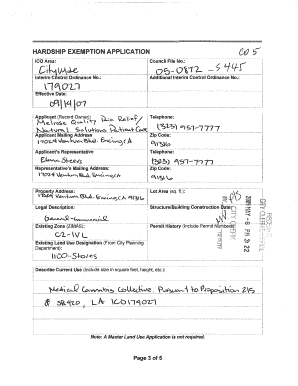 HARDSHIP EXEMPTION APPLICATION
CD 5
ICO Area:
Citywide
Council File No.:
05-0872-S445
Interim Control Ordinance No.:
179027
Additional Interim Control Ordinance No.:
Effective Date:
09/14/07
Applicant (Record Owner):
Melrose Quality Pain Relief/
Natural Solutions Patient Care
Telephone:
(323) 957-7777
Applicant Mailing Address
17024 Ventura Blvd. Encino, CA
Zip Code:
91316
Applicant's Representative
Telephone:
(323) 957-7777
Representative's Mailing Address:
17024 Ventura Blvd. Encino, CA
Zip Code:
91316
Property Address:
17024 Ventura Blvd. Encino, CA 91316
Lot Area (sq. ft.):
Legal Description:
General-Commercial
Structure/Building Construction Date:
Existing Zone (ZIMAS):
C2-1VL
Permit History (Include Permit Numbers):
Existing Land Use Designation (From City Planning
Department):
1100-Stores
CITY CLERK
Describe Current Use (Include size in square feet, height, etc.)
Medical Cannabis Collective, Pursuant to Proposition 215
& SB420, LA ICO179027
Note: A Master Land Use Application is not required.
Page 3 of 5